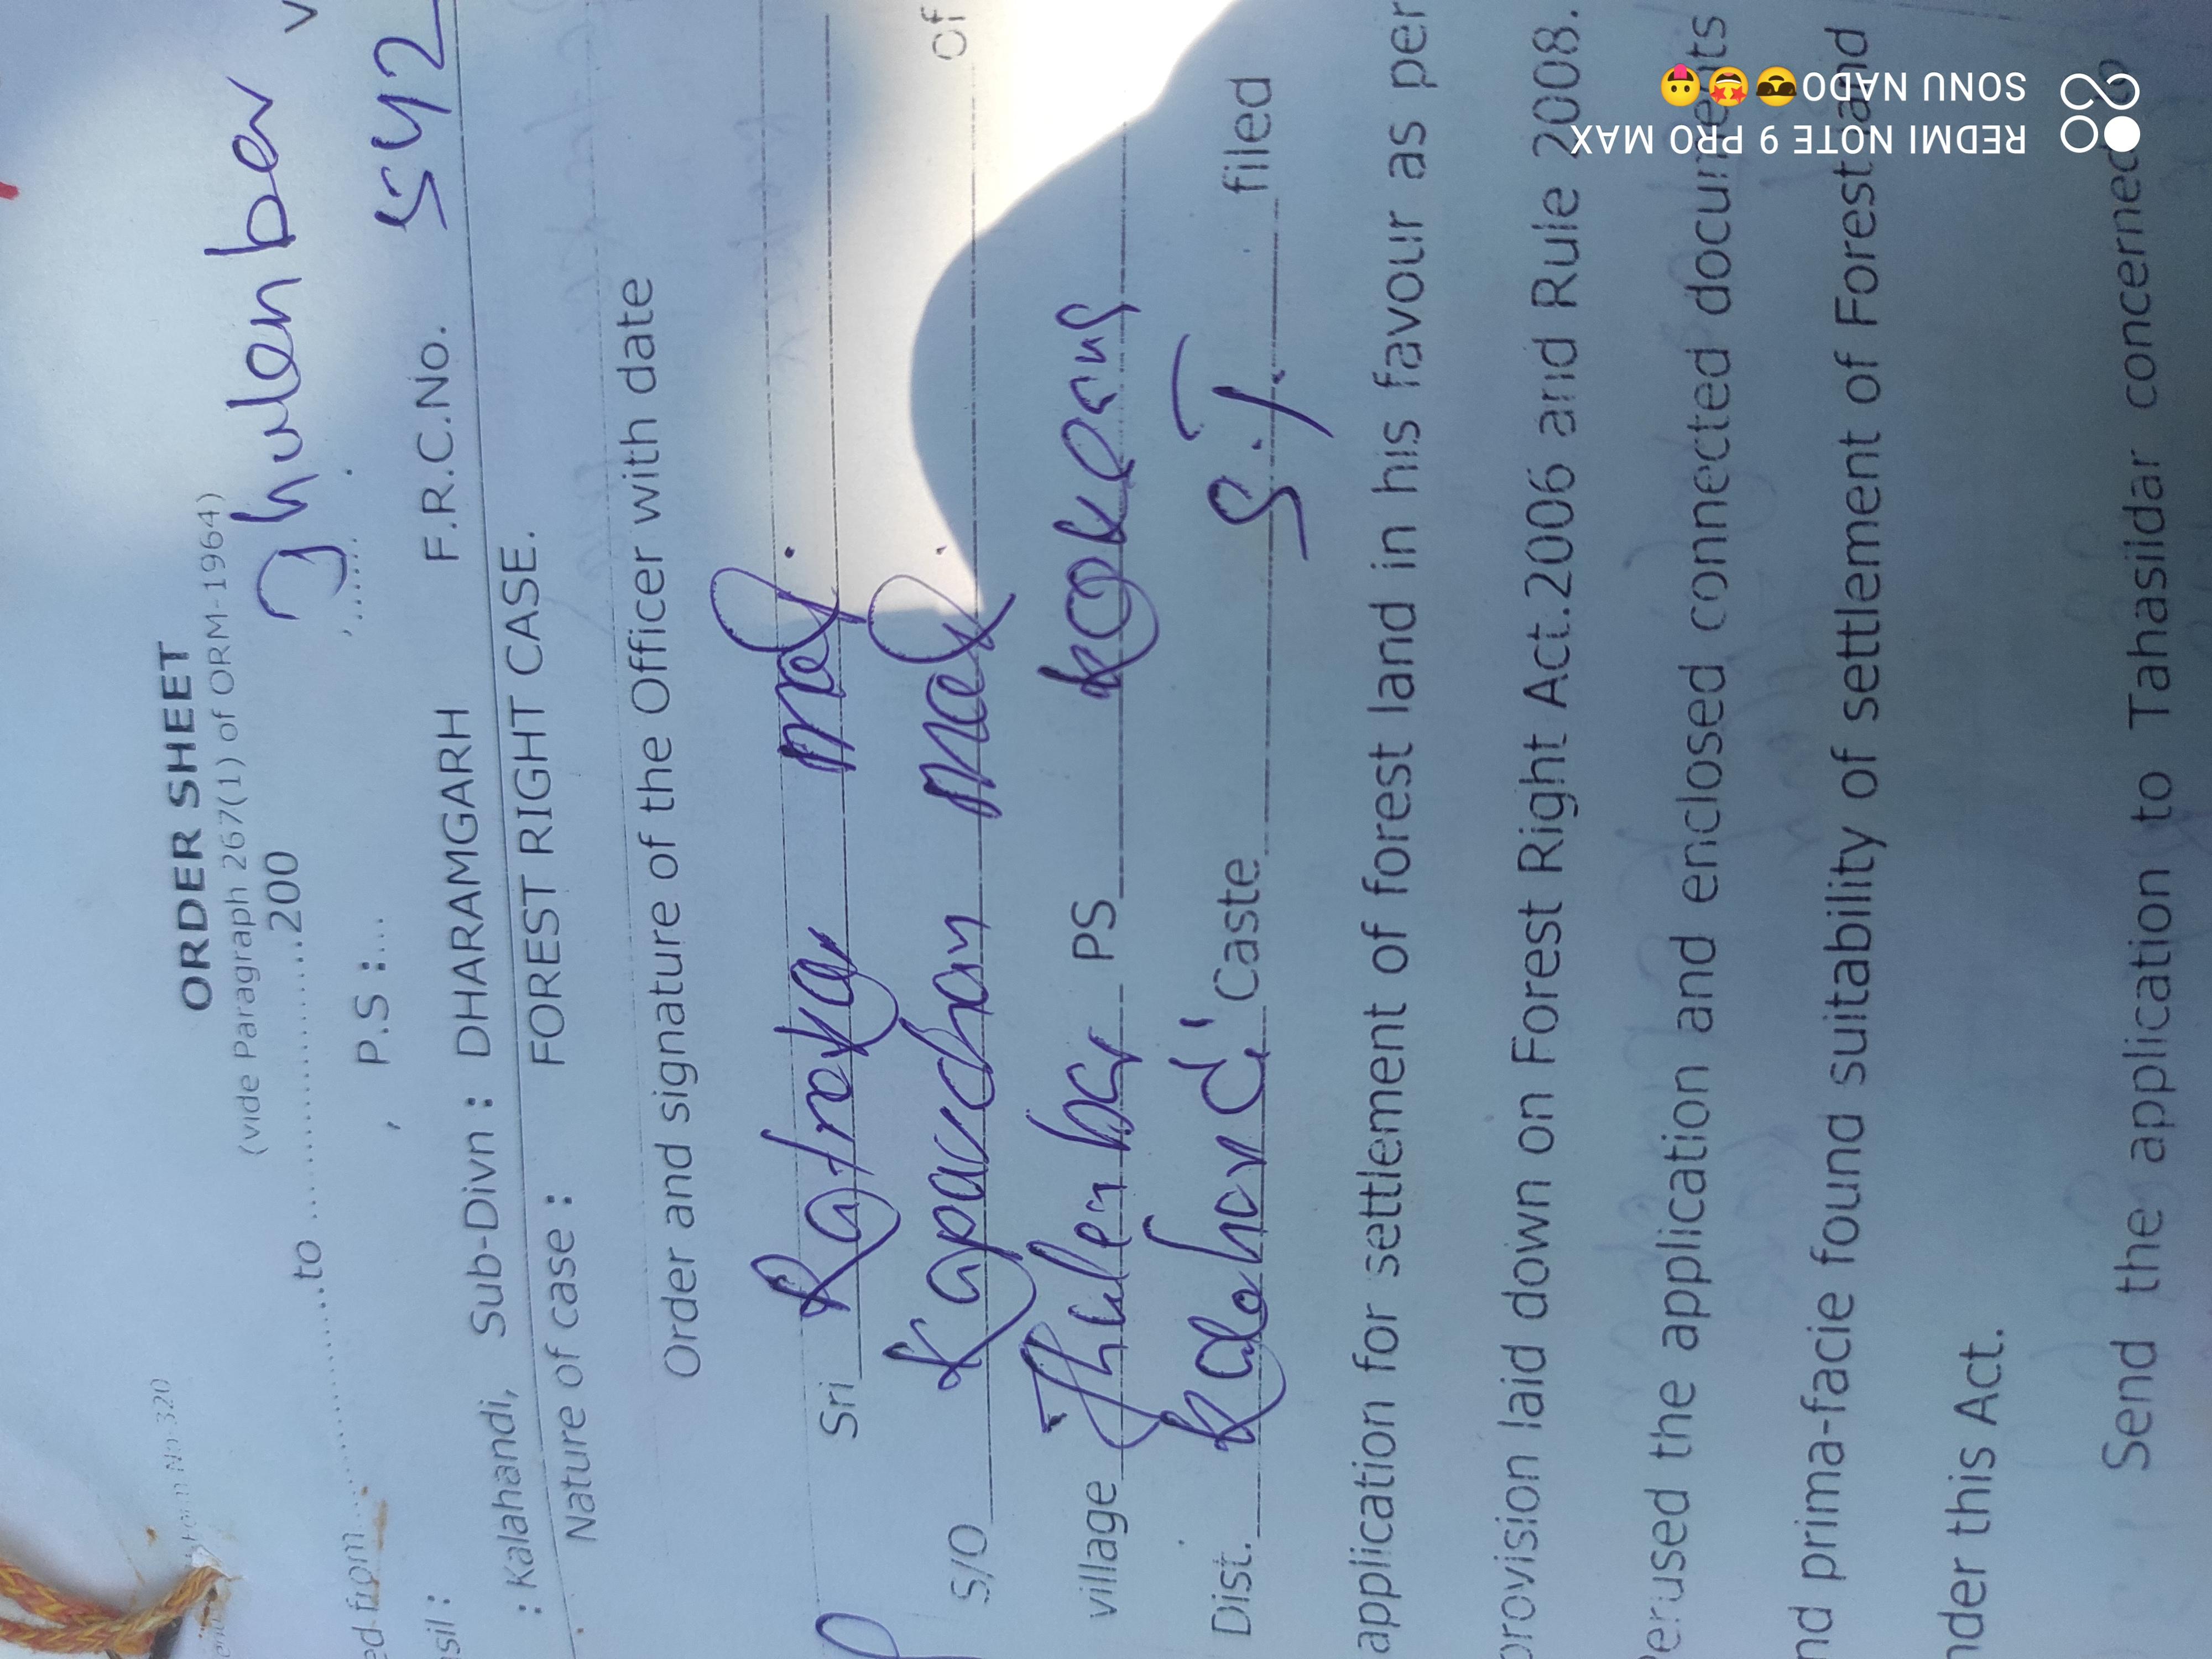 Form No-320
ORDER SHEET
(vide Paragraph 267(1) of ORM-1964)
ed from..............to..................200
Jhulenbar
sil : , P.S :...
: Kalahandi, Sub-Divn : DHARAMGARH F.R.C.No. 542
Nature of case : FOREST RIGHT CASE.
Order and signature of the Officer with date
Sri
S/O Majhi of
village Jhulenbar PS Koksara
Dist. Kalahandi Caste S.T. filed
application for settlement of forest land in his favour as per
provision laid down on Forest Right Act.2006 and Rule 2008.
Perused the application and enclosed connected documents
nd prima-facie found suitability of settlement of Forest land
nder this Act.
Send the application to Tahasildar concerned
REDMI NOTE 9 PRO MAX
SONU NADO😎🤩😍